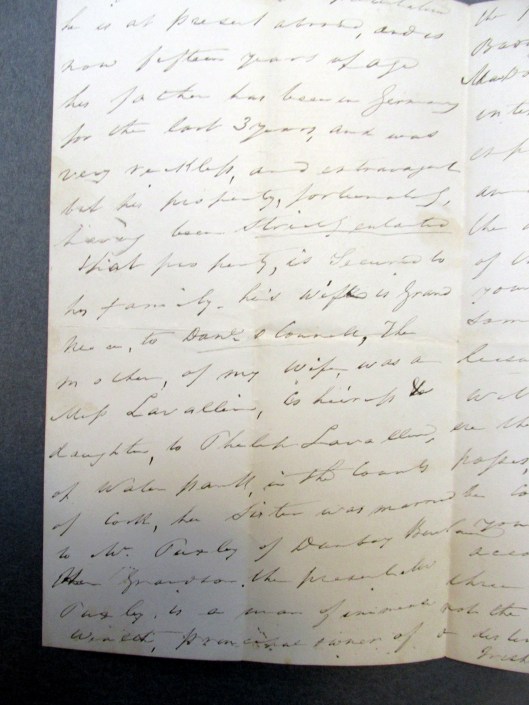 he is at present abroad, and is
now fifteen years of age
his father has been in Germany
for the last 3 years, and was
very reckless, and extravagant
but his property, fortunately,
having been strictly entailed
that property, is secured to
his family. his wife is Grand
Neice, to Danl O Connell, The
mother, of my wife, was a
Miss Lavallin, Co heiress &
daughter, to Philip Lavallin,
of Water park, in the County
of Cork, her Sister was married
to Mr. Puxley of Dunboy
Grandson, the present Mr
Puxley, is a man of immense
wealth, principal owner of